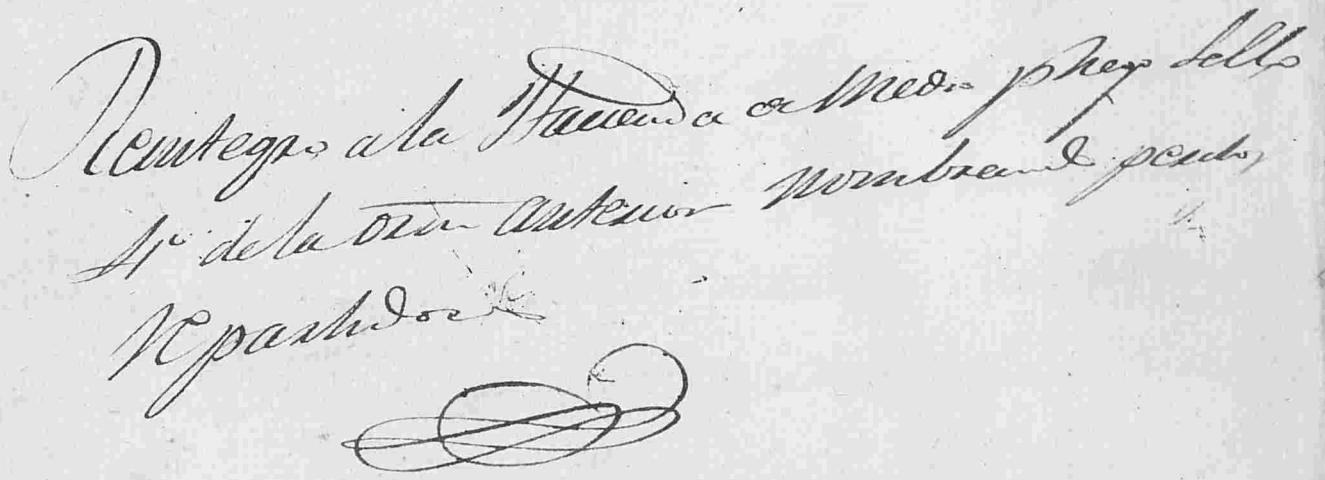 Reintegro a la Hacienda de Medio pliego Sello
4º de la orn anterior nombrando peritos
Repartidores